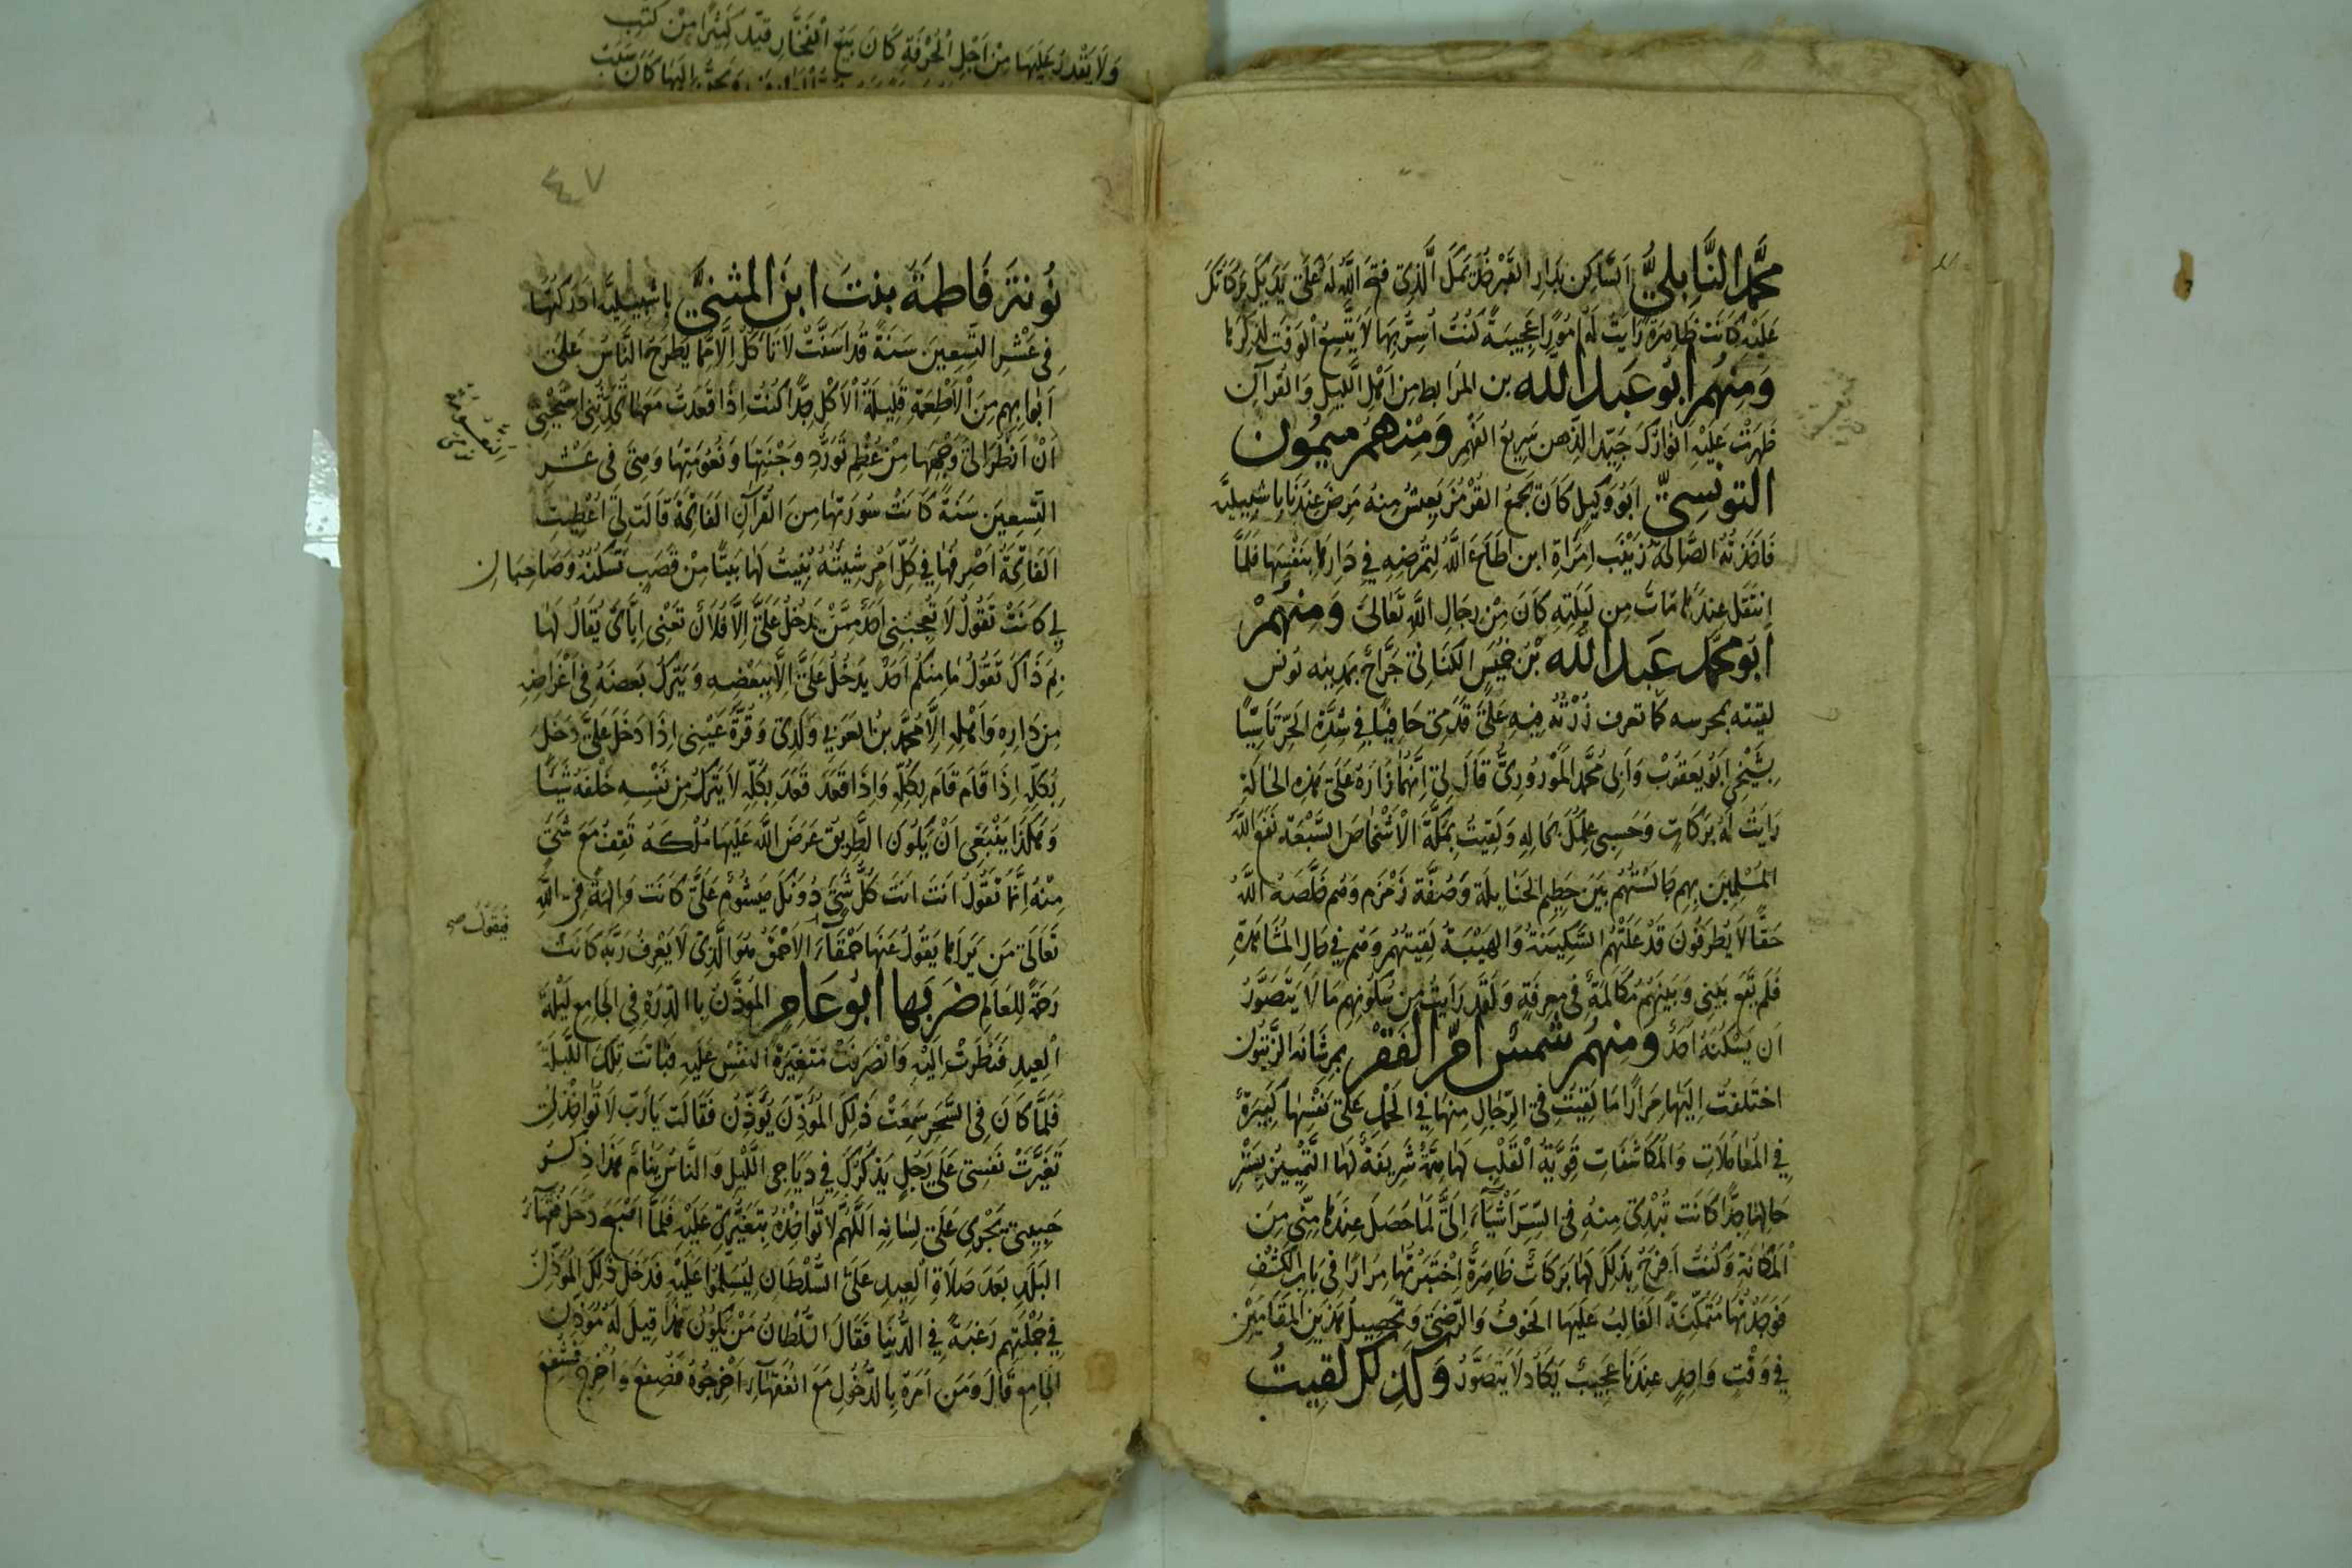 ولا يقدر عليها من اجل الحرفة كان يبيع الفخار قيد كثيرا من كتب
محمد النابلي الساكن بدار القبر فذ تمل الذي فتح الله له على يديك بركاتك
عليه كانت ظاهرة رايت له امورا عجيبة كنت اسر بها لا يتسع الوقت لذكرها
ومنهم ابو عبد الله بن المرابط من اهل الليل والقرآن
ظهرت عليه انوارك جيد الذهن سريع الفهم ومنهم ميمون
التونسي ابو وكيل كان يجمع القرمز يعيش منه مرض عندنا باشبيلية
فاخذته الصالحة زينب امراة ابن عطاء الله لتمرضه في دارها بنفسها فلما
انتقل عندها مات من ليلته كان من رجال الله تعالى ومنهم
ابو محمد عبد الله بن خميس الكناني جراح بمدينة تونس
لقيته بمحرسه كما تعرف زرته فيه على قدمي حافيا في شدة الحر تاسيا
بشيخي ابو يعقوب وابي محمد الموروري قال لي انهما زاره على هذه الحالة
رايت له بركات وحسبي علمك بحاله ولقيت بمكة الاشخاص السبعة نفع الله
المسلمين بهم جالستهم بين حطيم الحنابلة وصفة زمزم وهم خلصه الله
حقا لا يطرفون قد علتهم السكينة والهيبة لقيتهم وهم في حال المشاهدة
فلم تقع بيني وبينهم مكالمة في معرفة ولقد رايت من سكونهم ما لا يتصور
ان يسكنه احد ومنهم شمس ام الفقر بمرشانة الزيتون
اختلفت اليها مرارا ما لقيت في الرجال مثلها في الحمل على نفسها كبيرة
في المعاملات والمكاشفات قوية القلب لها همة شريفة لها التمييز يستر
حالها جدا كانت تبدي منه في السر اشياء الي لما حصل عندها مني من
المكانة وكنت افرح بذلك لها بركات ظاهرة اختبرتها مرارا في باب الكشف
فوجدتها متمكنة الغالب عليها الخوف والرضى وتحصيل هذين المقامين
في وقت واحد عندنا عجيب يكاد لا يتصور وكذلك لقيت
٤٧
نونتر فاطمة بنت ابن المثني باشبيلية ادركتها
في عشر التسعين سنة قد اسنت لا تاكل الا مما يطرح الناس على
ابوابهم من الاطعمة قليلة الاكل جدا كنت اذا قعدت معها تحدثني استحي
ان انظر الى وجهها من عظم تورد وجنتيها ونعومتها وهي في عشر
التسعين سنة كانت سورتها من القرآن الفاتحة قالت لي اعطيت
الفاتحة اصرفها في كل امر شيئته بنيت لها بيتا من قصب تسكنه وصاحبان
لي كانت تقول لا تعجبني احد ممن يدخل علي الا فلان تعنى اياى يقال لها
بم ذاك تقول ما منكم احد يدخل علي الا ببعضه ويترك بعضه في اغراضه
من داره واهله الا محمد بن العربي ولدي وقرة عيني اذا دخل علي دخل
بكله اذا قام قام بكله واذا قعد قعد بكله لا يترك من نفسه خلفه شيئا
وهكذا ينبغي ان يكون الطريق عرض الله عليها ملكه تقف مع شئ
منه انما تقول انت انت كل شئ دونك ميشوم علي كانت والهة في الله
تعالى من يراها يقول عنها حمقاء الاحمق هو الذي لا يعرف ربه كانت
فتقول صح
رحمة للعالم ضربها ابو عامر المؤذن بالدرة في الجامع ليلة
العيد فنظرت اليه وانصرفت متغيرة النفس عليه فباتت تلك الليلة
فلما كان في السحر سمعت ذلك المؤذن يؤذن فقالت يا رب لا تواخذني
تغيرت نفسي على رجل يذكرك في دياجي الليل والناس ينام هذا ذكر
حبيبي يجري على لسانه اللهم لا تواخذه بتغيري عليه فلما اصبح دخل فقهاء
البلد بعد صلاة العيد على السلطان ليسلموا عليه فدخل ذلك المؤذن
في جملتهم رغبة في الدنيا فقال السلطان من يكون هذا قيل له مؤذن
الجامع قال ومن امره بالدخول مع الفقهاء اخرجوه فصفع واخرج فشفع